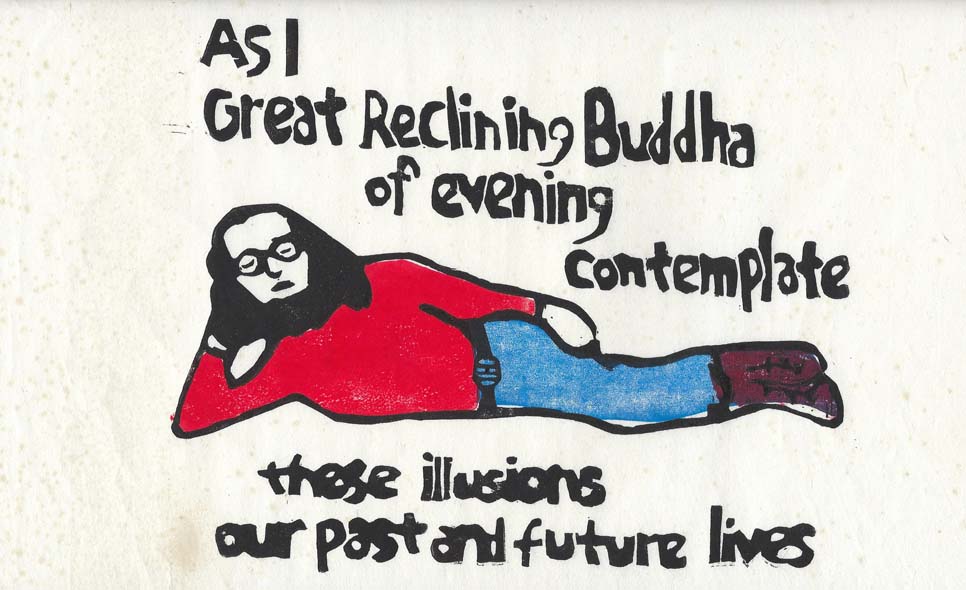 As I
Great Reclining Buddha
of evening
contemplate
these illusions
our past and future lives